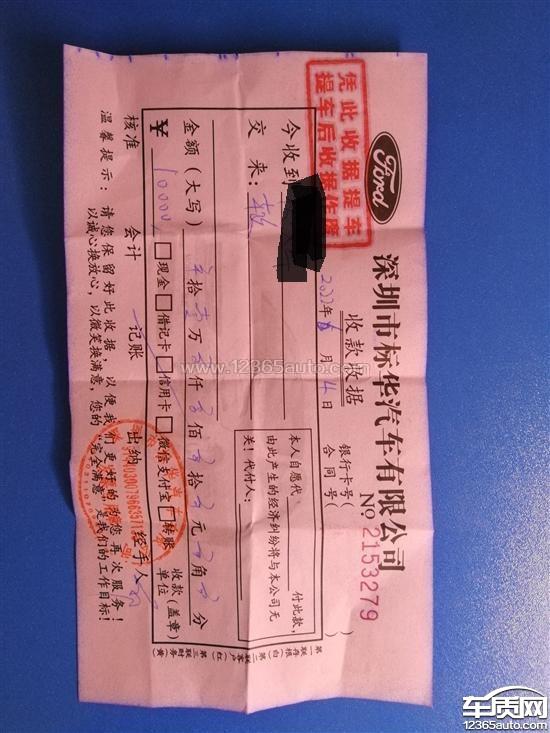 Ford
深圳市标华汽车有限公司
收款收据
№ 2153279
凭此收据提车
提车后收据作废
银行卡号(
合同号(
)
今收到
年 月 4日
交来:
本人自愿代
付此款,
由此产生的经济纠纷将与本公司无
关!代付人:
金额(大写) 拾 万 仟 佰 拾 元 角 分
¥ 10000 □现金 □借记卡 □信用卡 □微信支付宝 □转账
收款(盖章)
单位
核准 会计 记账 出纳 经手人
温馨提示:请您保留好此收据,以便我们更好的为您再次服务!
以诚心换放心,以微笑换满意,您的"完全满意"是我们的工作目标!
第一联存根(白) 第二联客户(红) 第三联财务(黄)
www.12365auto.com
车质网
12365auto.com